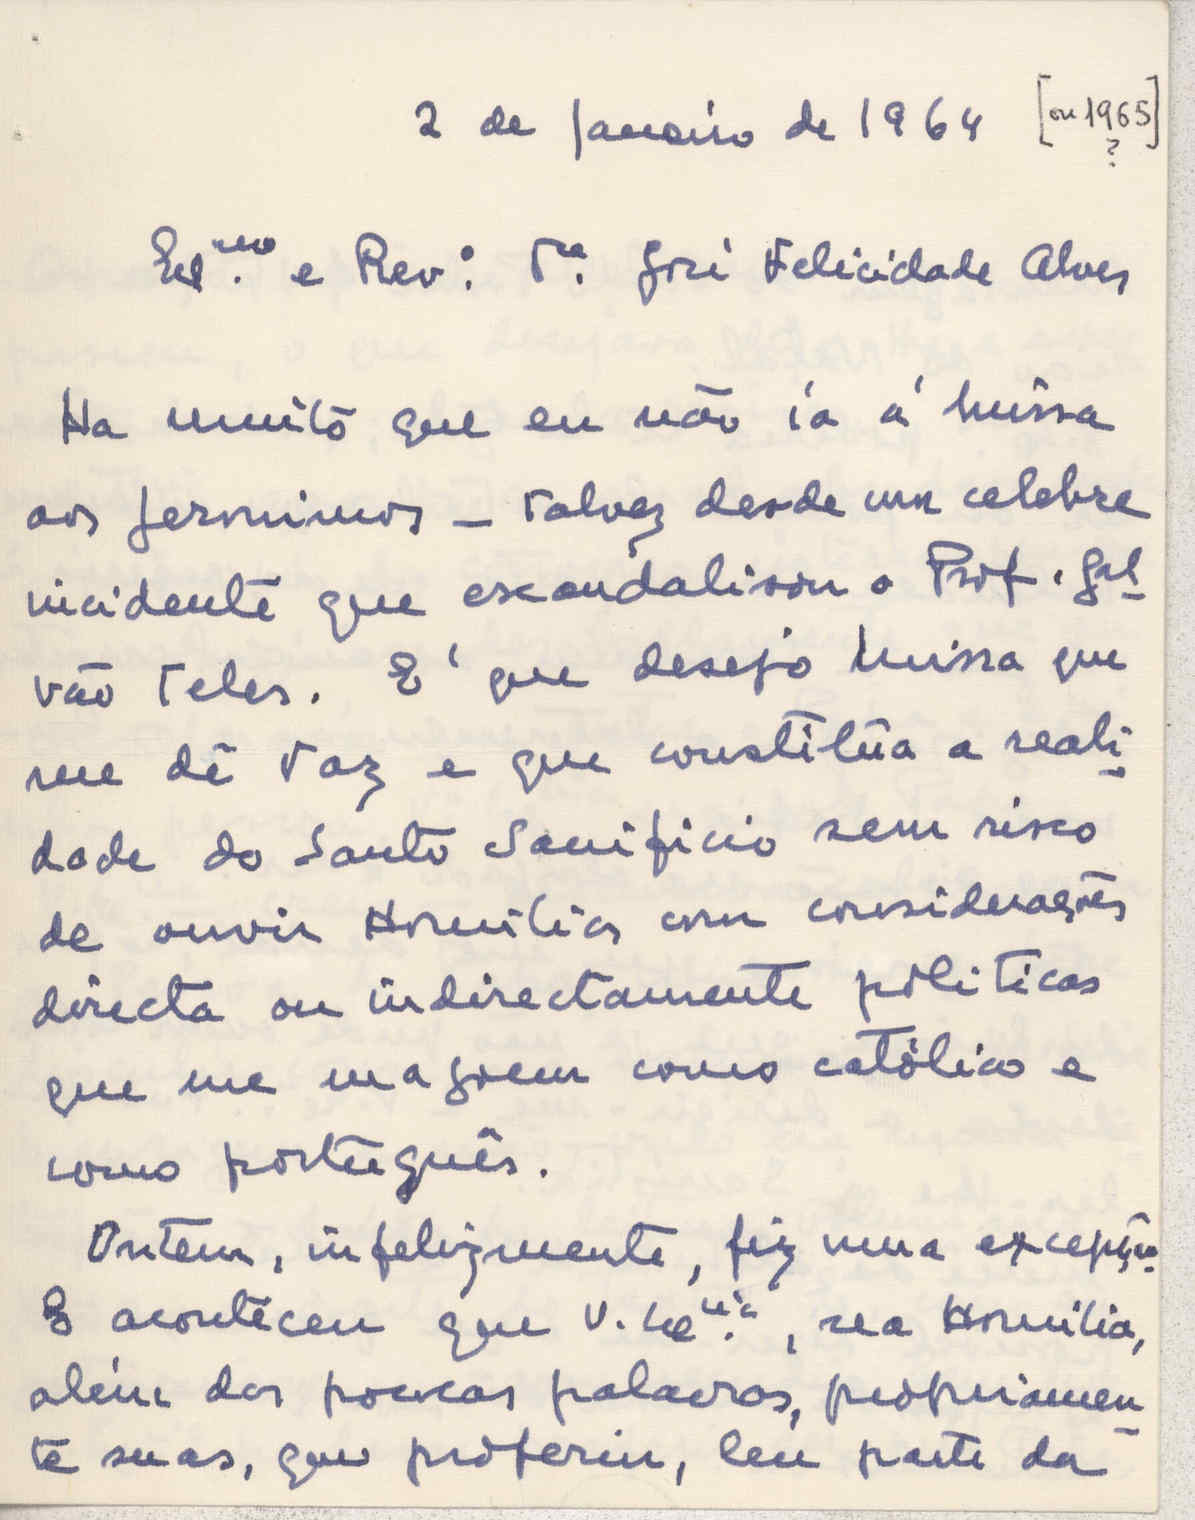 2 de Janeiro de 1964 [ou 1965]
?
Ex.mo e Rev.º P.e José Felicidade Alves
Ha muito que eu não ía á missa
aos Jeronimos - talvez desde um celebre
incidente que escandalisou o Prof. Gal-
vão Teles. E' que desejo missa que
me dê Paz e que constitúa a reali-
dade do Santo Sacrificio sem risco
de ouvir Homilias com considerações
directa ou indirectamente politicas
que me magoem como católico e
como português.
Ontem, infelizmente, fiz uma excepção.
E aconteceu que V. Ex.cia, na Homilia,
além das poucas palavras, propriamen-
te suas, que proferiu, leu parte da